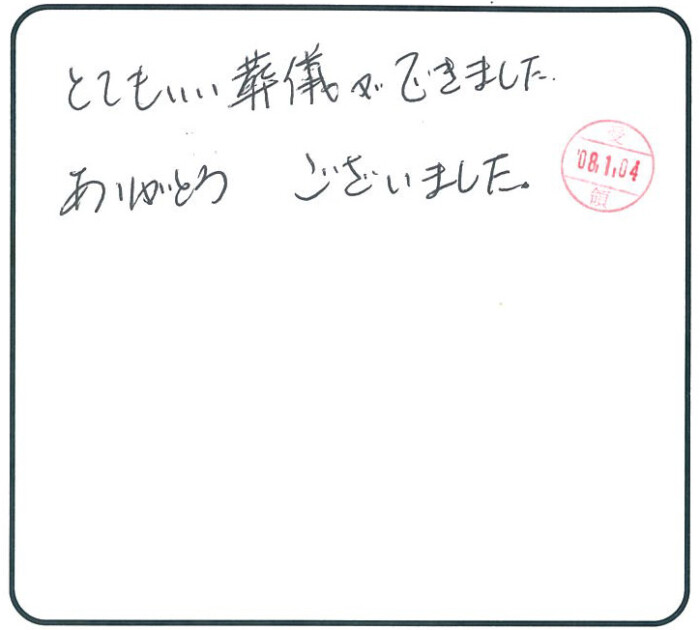 とてもいい葬儀ができました
ありがとう ございました。
受
'08.1.04
領